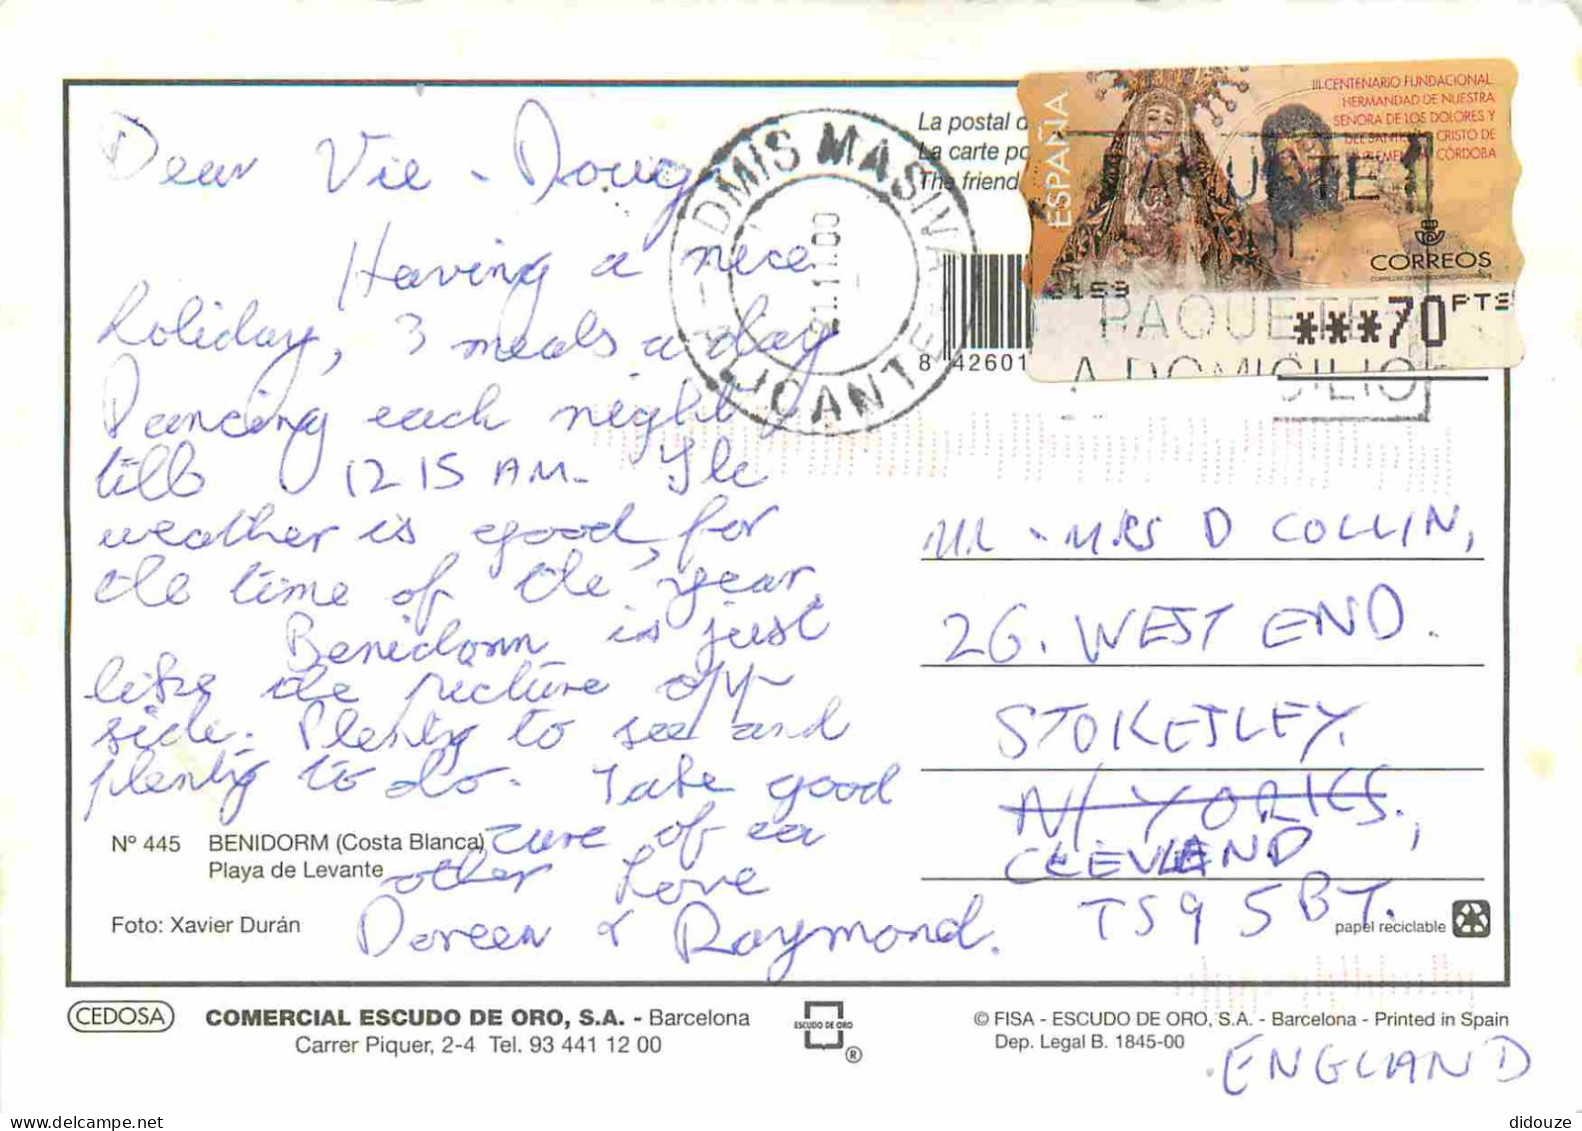 Dear Vie - Doug
Having a nice
holiday, 3 meals a day
Dancing each night
till 12 15 AM. The
weather is good, for
the time of the year.
Benidorm is just
like the picture opp
side. Plenty to see and
plenty to do. Take good
care of ea
other Love
Doreen & Raymond.
Nº 445 BENIDORM (Costa Blanca)
Playa de Levante
Foto: Xavier Durán
La postal d
La carte po
The friend
8 42601
ADMIS MASIVA
21.11.00
ALICANTE
ESPAÑA
III CENTENARIO FUNDACIONAL
HERMANDAD DE NUESTRA
SEÑORA DE LOS DOLORES Y
DEL SANTÍSIMO CRISTO DE
CÓRDOBA
CORREOS
***70 PTS
PAQUETE
PAQUETE
A DOMICILIO
MR - MRS D COLLIN,
26. WEST END.
STOKESLEY.
N/ YORKS.,
CLEVLAND
TS9 5BT.
papel reciclable
CEDOSA
COMERCIAL ESCUDO DE ORO, S.A. - Barcelona
Carrer Piquer, 2-4 Tel. 93 441 12 00
ESCUDO DE ORO
®
© FISA - ESCUDO DE ORO, S.A. - Barcelona - Printed in Spain
Dep. Legal B. 1845-00
ENGLAND
didouze